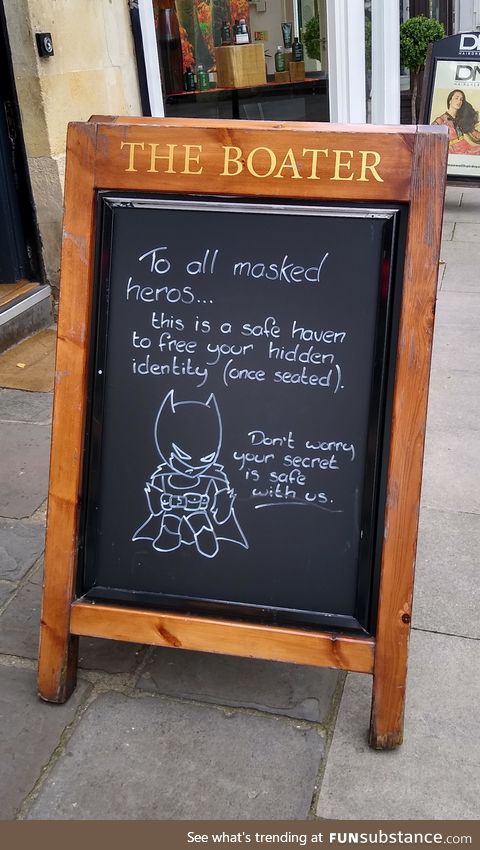 THE BOATER
To all masked
heros...
this is a safe haven
to free your hidden
identity (once seated).
Don't worry
your secret
is safe
with us.
See what's trending at FUNsubstance.com